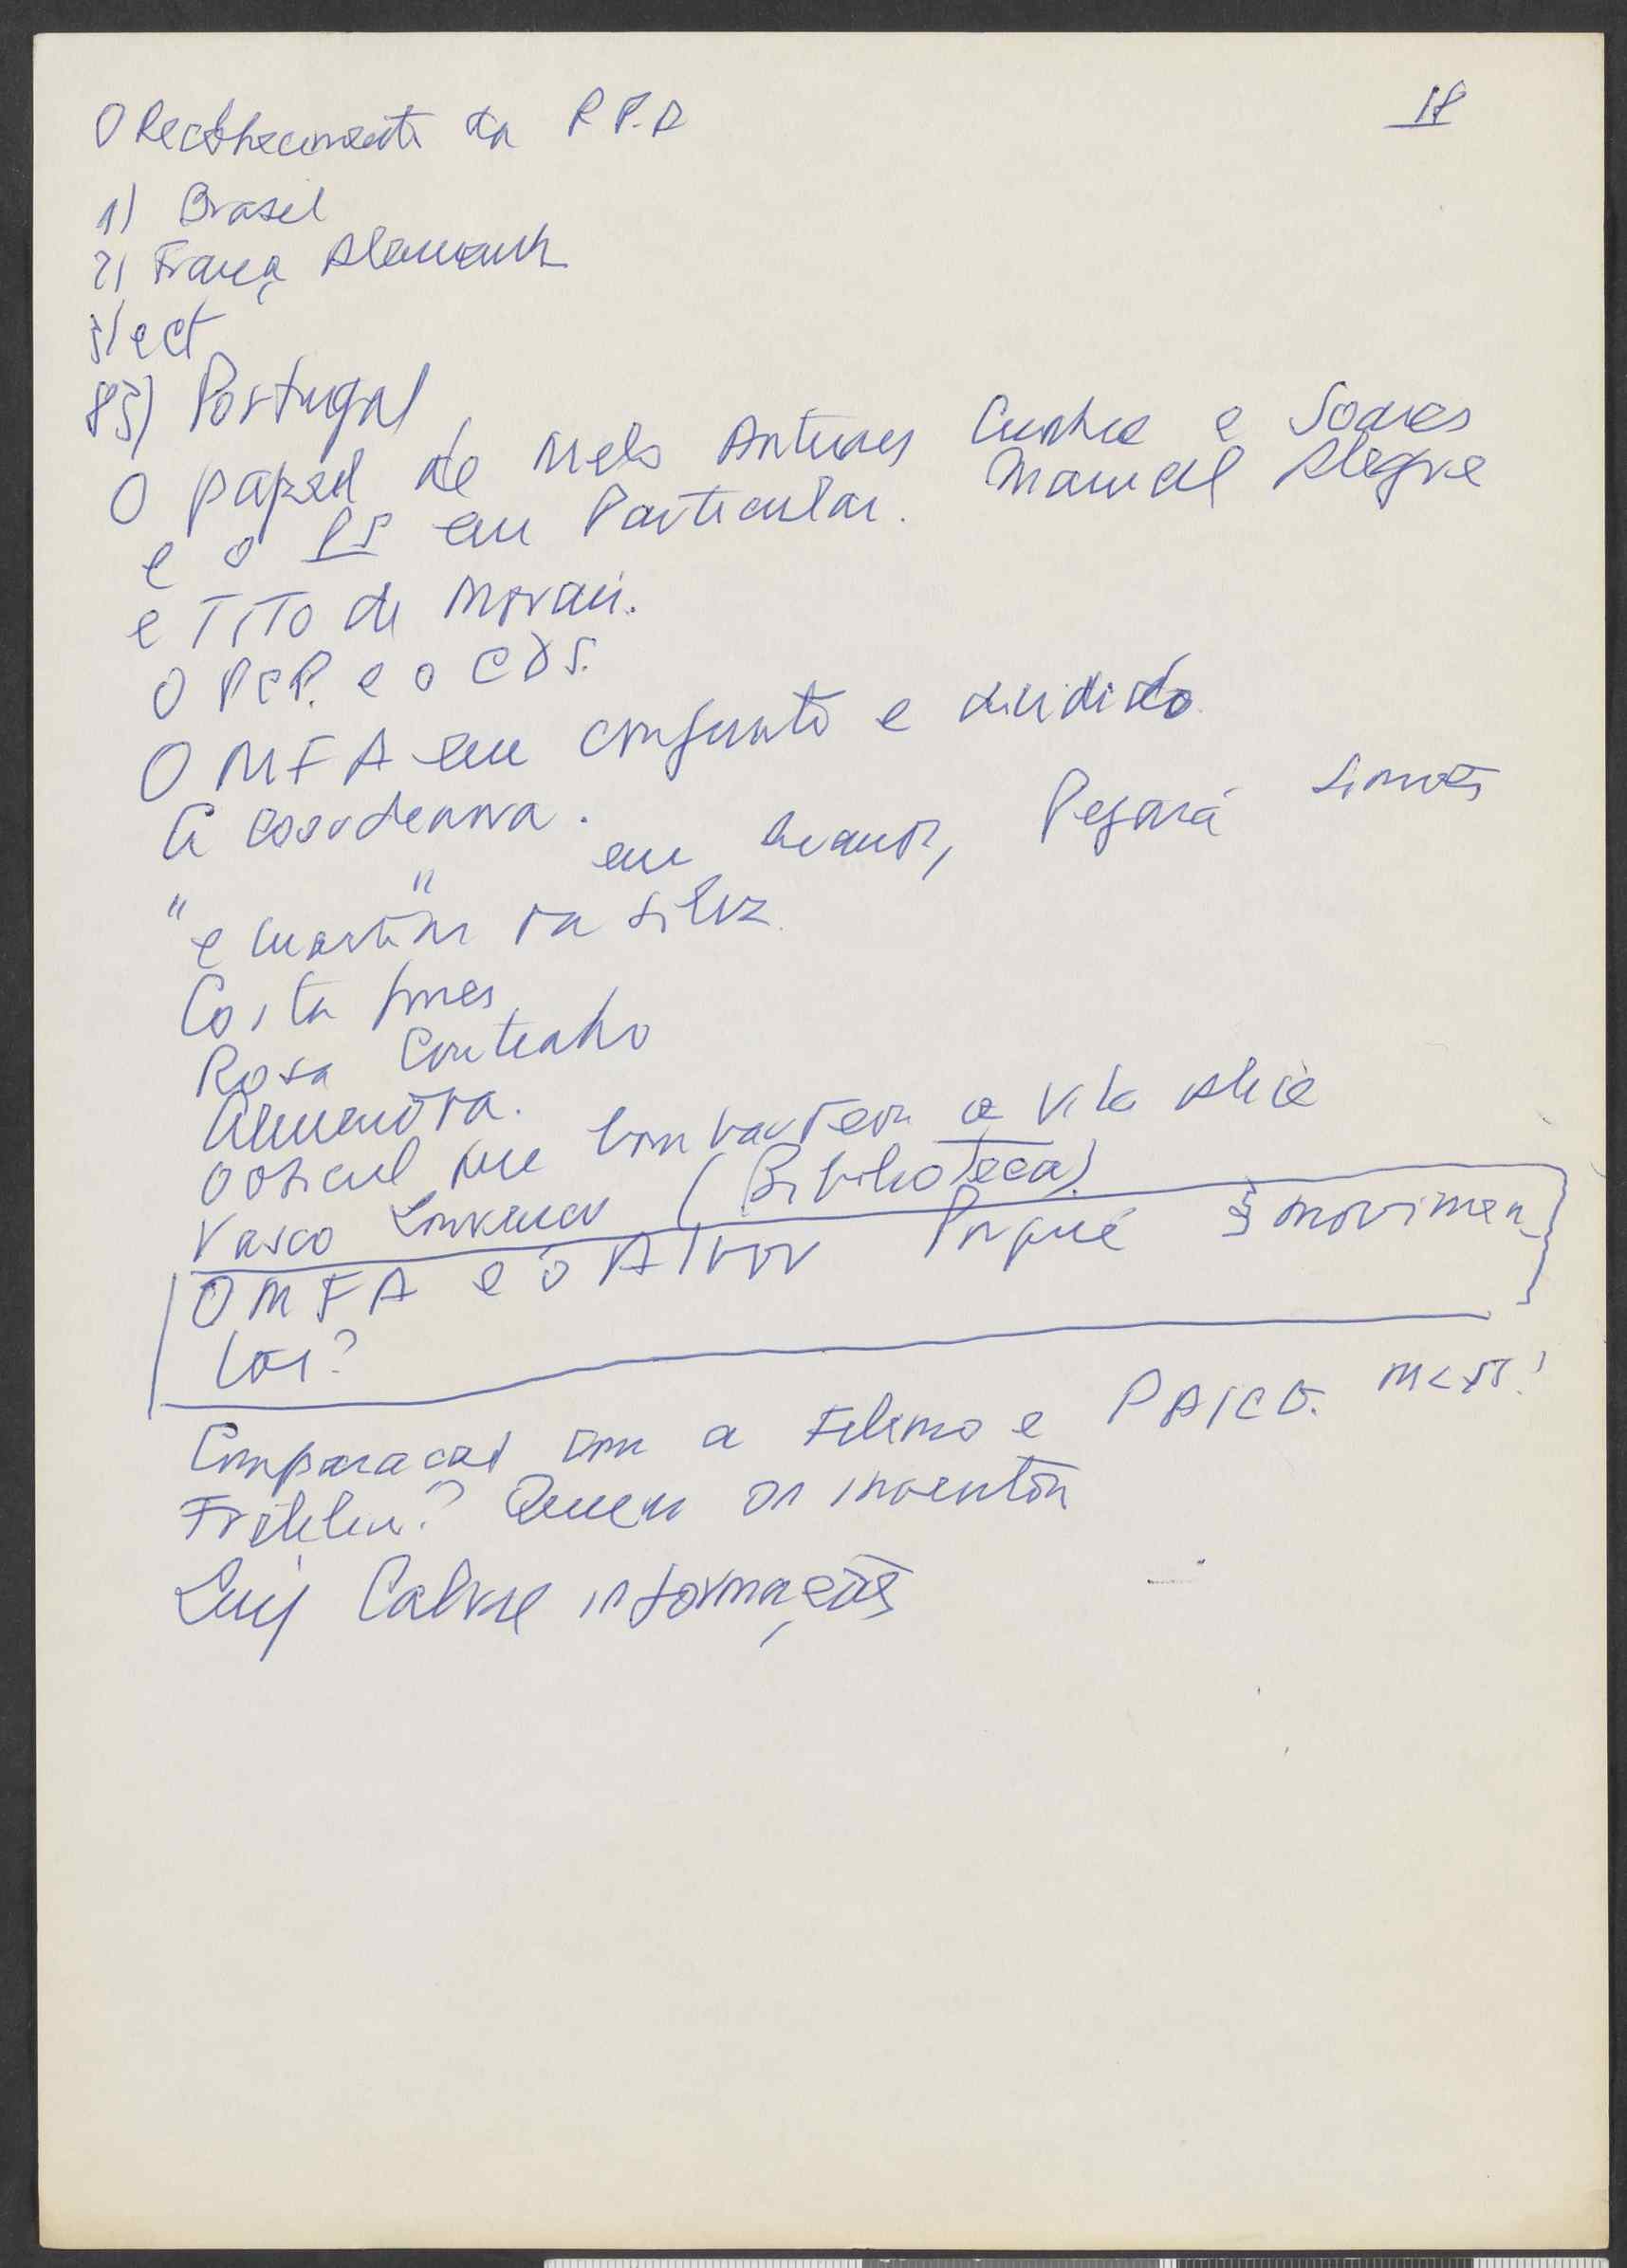 18
O Reconhecimento da R P.A
1) Brasil
2) França Alemanh
3) ect
83) Portugal
O papel de Melo Antunes Cunhal e Soares
e o PS em Particular. Manuel Alegre
e TITO de Morais.
O PCP. e o CDS.
O MFA em conjunto e dividido.
A coordenova.
" " em Luanda, Pezará Simões
e Martins da Silva
Costa Gomes
Rosa Coutinho
Almendra.
O oficial que bombardeou a Vila Alice
Vasco Lourenço (Biblioteca)
O MFA e o Alvor Porquê 3 movimen
tos?
Comparacao com a Frelimo e PAIGC. MLST!
Fretilin? Quem os inventou
Luiz Cabral informações